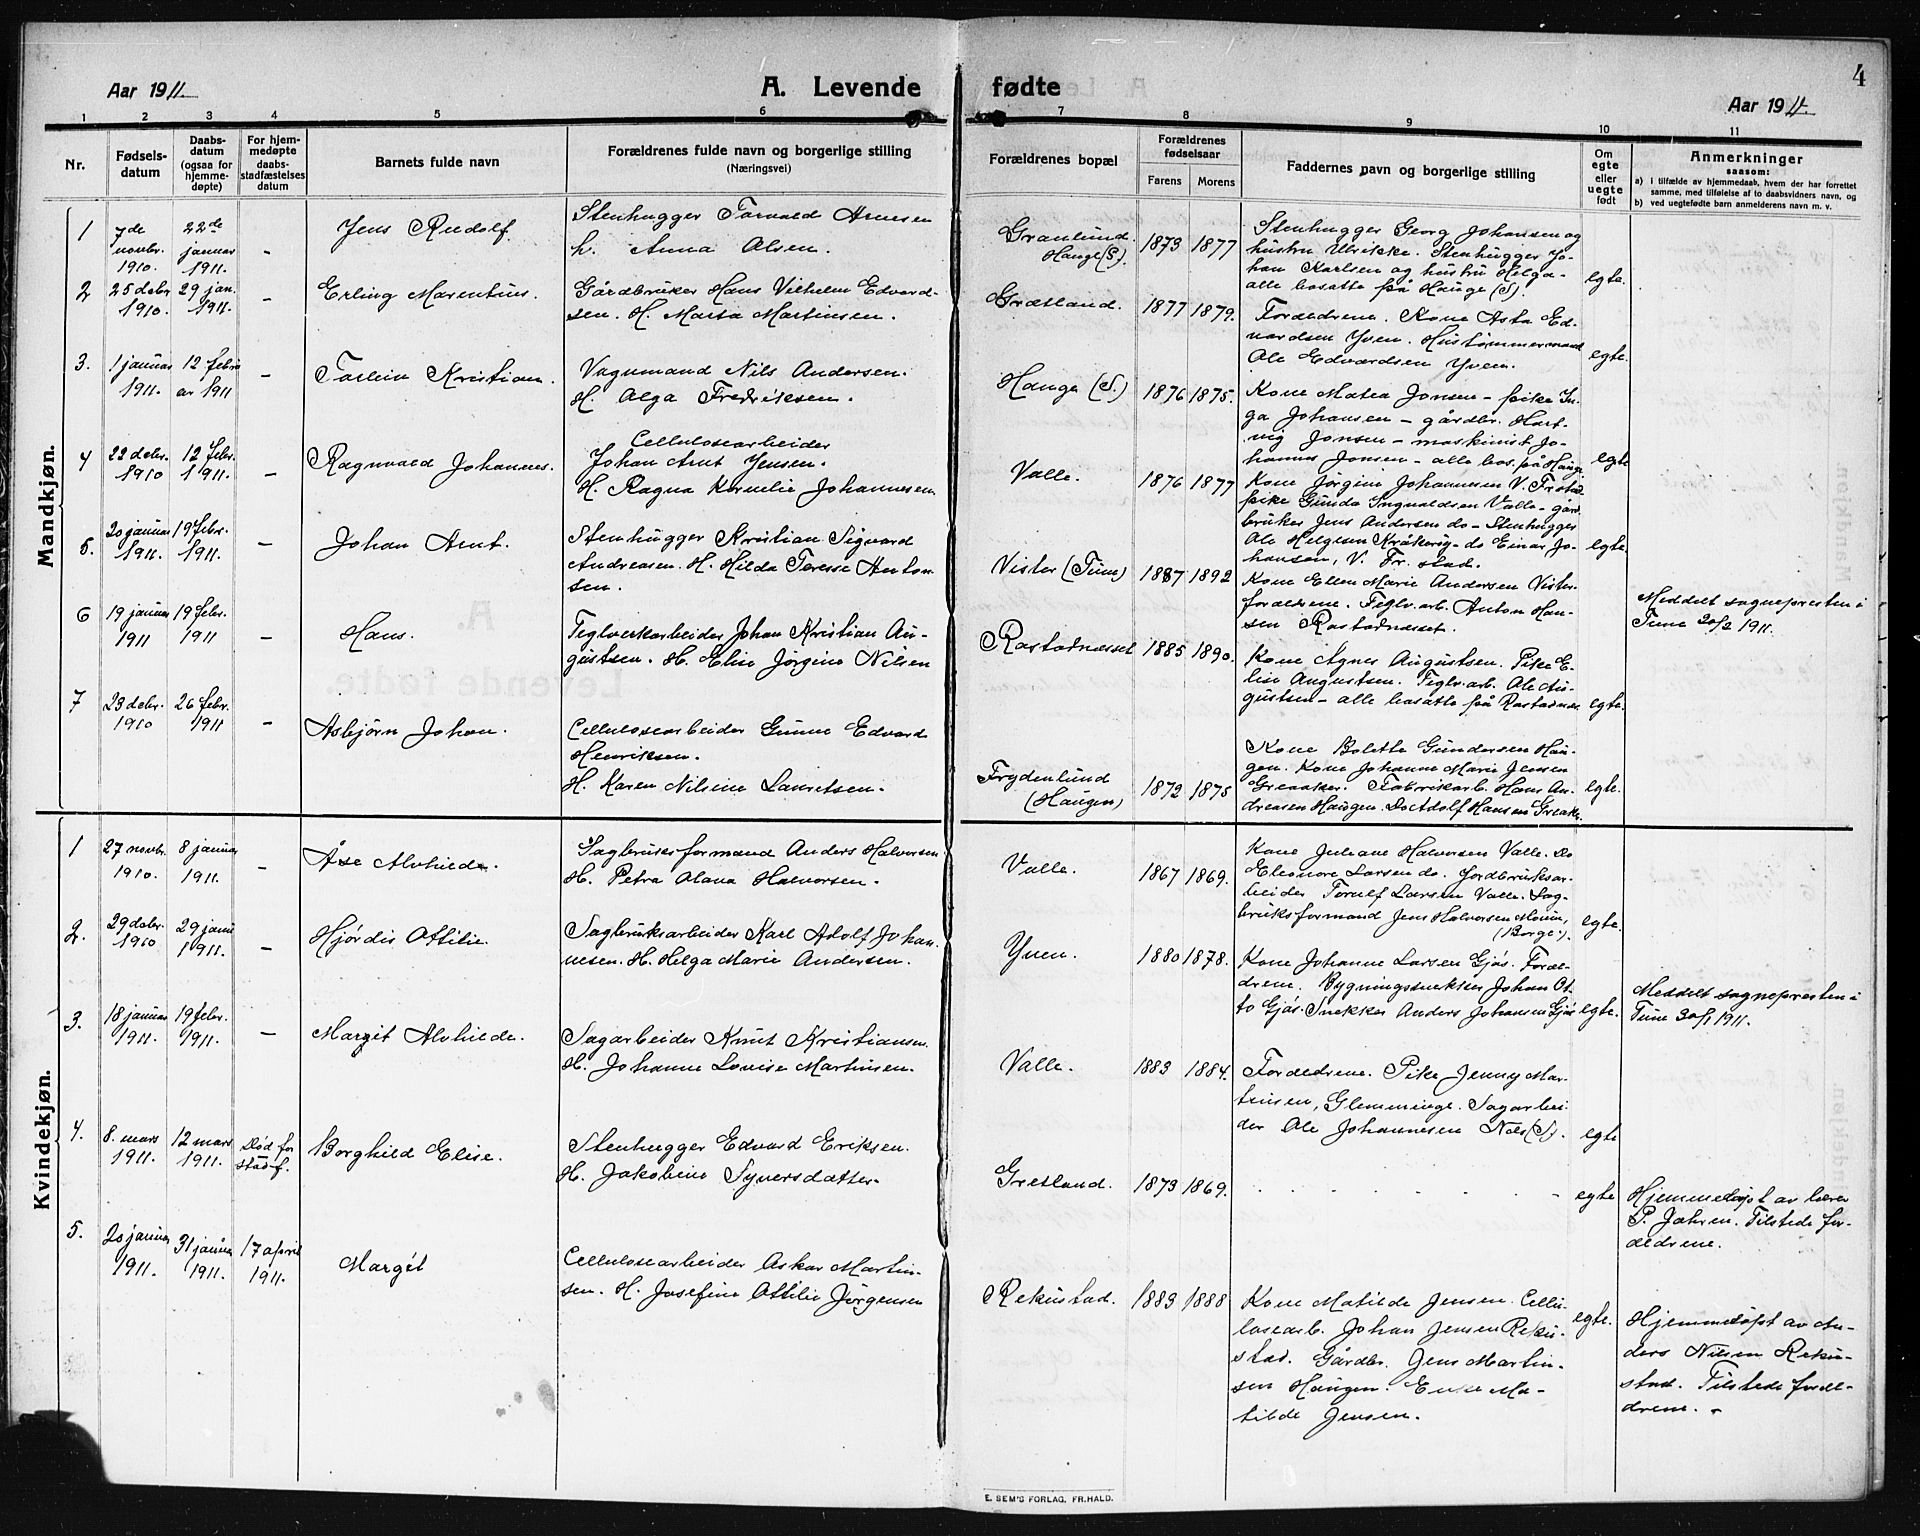 4
Aar 1911.
A. Levende fødte
Aar 1911.
1 2 3 4 5 6 7 8 9 10 11
Nr.
Fødsels-
datum
Daabs-
datum
(ogsaa for
hjemme-
døpte)
For hjem-
medøpte
daabs-
stadfæstelses
datum
Barnets fulde navn
Forældrenes fulde navn og borgerlige stilling
(Næringsvei)
Forældrenes bopæl
Forældrenes
fødselsaar
Farens Morens
Faddernes navn og borgerlige stilling
Om
egte
eller
uegte
født
Anmerkninger
saasom:
a) i tilfælde av hjemmedaab, hvem der har forrettet
samme, med tilføielse af to daabsvidners navn, og
b) ved uegtefødte barn anmelderens navn m. v.
Mandkjøn.
1
7de
novbr.
1910.
22de
januar
1911.
-
Jens Rudolf.
Stenhugger Torvald Arnesen
h. Anna Olsen.
Granlund.
Hauge (S).
1873 1877
Stenhugger Georg Johansen og
hustru Ulrikke. Stenhugger Jo-
han Karlsen og hustru Helga-
alle bosatte på Hauge (S).
egte.
2
25 debr
1910.
29 jan.
1911.
-
Erling Marentius.
Gårdbruker Hans Vilhelm Edvard-
sen. H. Marta Martinsen.
Grætland.
1877 1879.
Forældrene. Kone Asta Ed-
vardsen Yven. Hustømmermand
Ole Edvardsen Yven.
egte.
3.
1 januar
1911.
12 febru
ar 1911
-
Torleiv Kristian.
Vognmand Nils Andersen.
H. Olga Fredriksen.
Hauge (S.)
1876 1875.
Kone Matea Jonsen - pike In-
ga Johansen - gårdbr. Hart-
vig Jonsen - maskinist Jo-
hannes Jonsen - alle bos. på Hauge
egte
4
22 debr.
1910
12 febr.
1911.
-
Ragnvald Johannes.
Cellulosearbeider
Johan Arnt Jensen.
H. Ragna Kornelie Johannesen.
Valle.
1876 1877
Kone Jørgine Johannesen V. Frstad.
pike Gunda Ingvaldsen Valle - gård-
bruker Jens Andersen do - Stenhugger
Ole Helgesen Kråkerøy - do Einar Jo-
hansen, V. Fr. stad.
egte.
5.
20 januar
1911.
19 febr.
1911.
-
Johan Arnt.
Stenhugger Kristian Sigvard
Andreasen. H. Hilda Terese Anton-
sen.
Vister (Tune)
1887 1892
Kone Ellen Marie Andersen Vister.
forældrene. Teglv.arb. Anton Han-
sen Rostadnesset.
Meddelt sognepresten i
Tune 20/2 1911.
6
19 januar
1911
19 febr.
1911
-
Hans.
Teglverkarbeider Johan Kristian Au-
gustsen. H. Elise Jørgine Nilsen
Rostadnesset
1885 1890.
Kone Agnes Augustsen. Pike E-
lise Augustsen. Teglv.arb. Ole Au-
gustsen - alle bosatte på Rostadnes.
egte.
7
23 debr.
1910
26 febr.
1911
-
Asbjørn Johan.
Cellulosearbeider Gunne Edvard
Henriksen.
H. Karen Nilsine Lauritsen.
Frydenlund
(Haugen)
1872 1875
Kone Bolette Gundersen Hau-
gen. Kone Johanne Marie Jensen
Greaaker. Fabrikarb. Hans An-
dreasen Haugen. Do Adolf Hansen Greåk.
egte.
Kvindekjøn.
1
27 novbr.
1910.
8 januar
1911.
-
Åse Alvhilde.
Sagbruksformand Anders Halvorsen.
H. Petra Olava Halvorsen.
Valle.
1867 1869.
Kone Juliane Halvorsen Valle. Do
Eleonore Larsen do. Jordbruksar-
beider Torulf Larsen Valle. Sag-
bruksformand Jens Halvorsen Moum,
(Borge).
egte.
2.
29 debr.
1910
29 janu
1911.
-
Hjørdis Ottilie.
Sagbruksarbeider Karl Adolf Johan-
nesen. H. Helga Marie Andersen.
Yven.
1880 1878.
Kone Johanne Larsen Gjøs. Foræl-
drene. Bygningssnekker Johan Ot-
to Gjøs. Snekker Anders Johansen Gjøs
egte.
Meddelt sognepresten i
Tune 30/1 1911.
3.
18 januar
1911.
19 febr.
1911.
-
Margit Alvhilde.
Sagarbeider Knut Kristiansen.
H. Johanne Lovise Martinsen.
Valle.
1883 1884.
Forældrene. Pike Jenny Mar-
tinsen, Glemminge. Sagarbei
der Ole Johannesen Nes (S).
egte
4.
8. mars
1911.
12 mars
1911.
Død før
stadf.
Borghild Elise.
Stenhugger Edvard Eriksen.
H. Jakobine Syversdatter.
Gretland.
1873 1869.
egte
Hjemmedøpt av lærer
P. Jahren. Tilstede for-
ældrene.
5.
20 januar
1911.
31 januar
1911.
17 april
1911.
Margit
Cellulosearbeider Oskar Martin-
sen. H. Josefine Ottilie Jørgensen
Rekustad.
1883 1888
Kone Matilde Jensen. Cellu-
losearb. Johan Jensen Reku-
stad. Gårdbr. Jens Martin-
sen Haugen. Enke Ma-
tilde Jensen.
egte.
Hjemmedøpt av An-
ders Nilsen Reku-
stad. Tilstede foræl-
drene.
E. SEM'S FORLAG, FR.HALD.